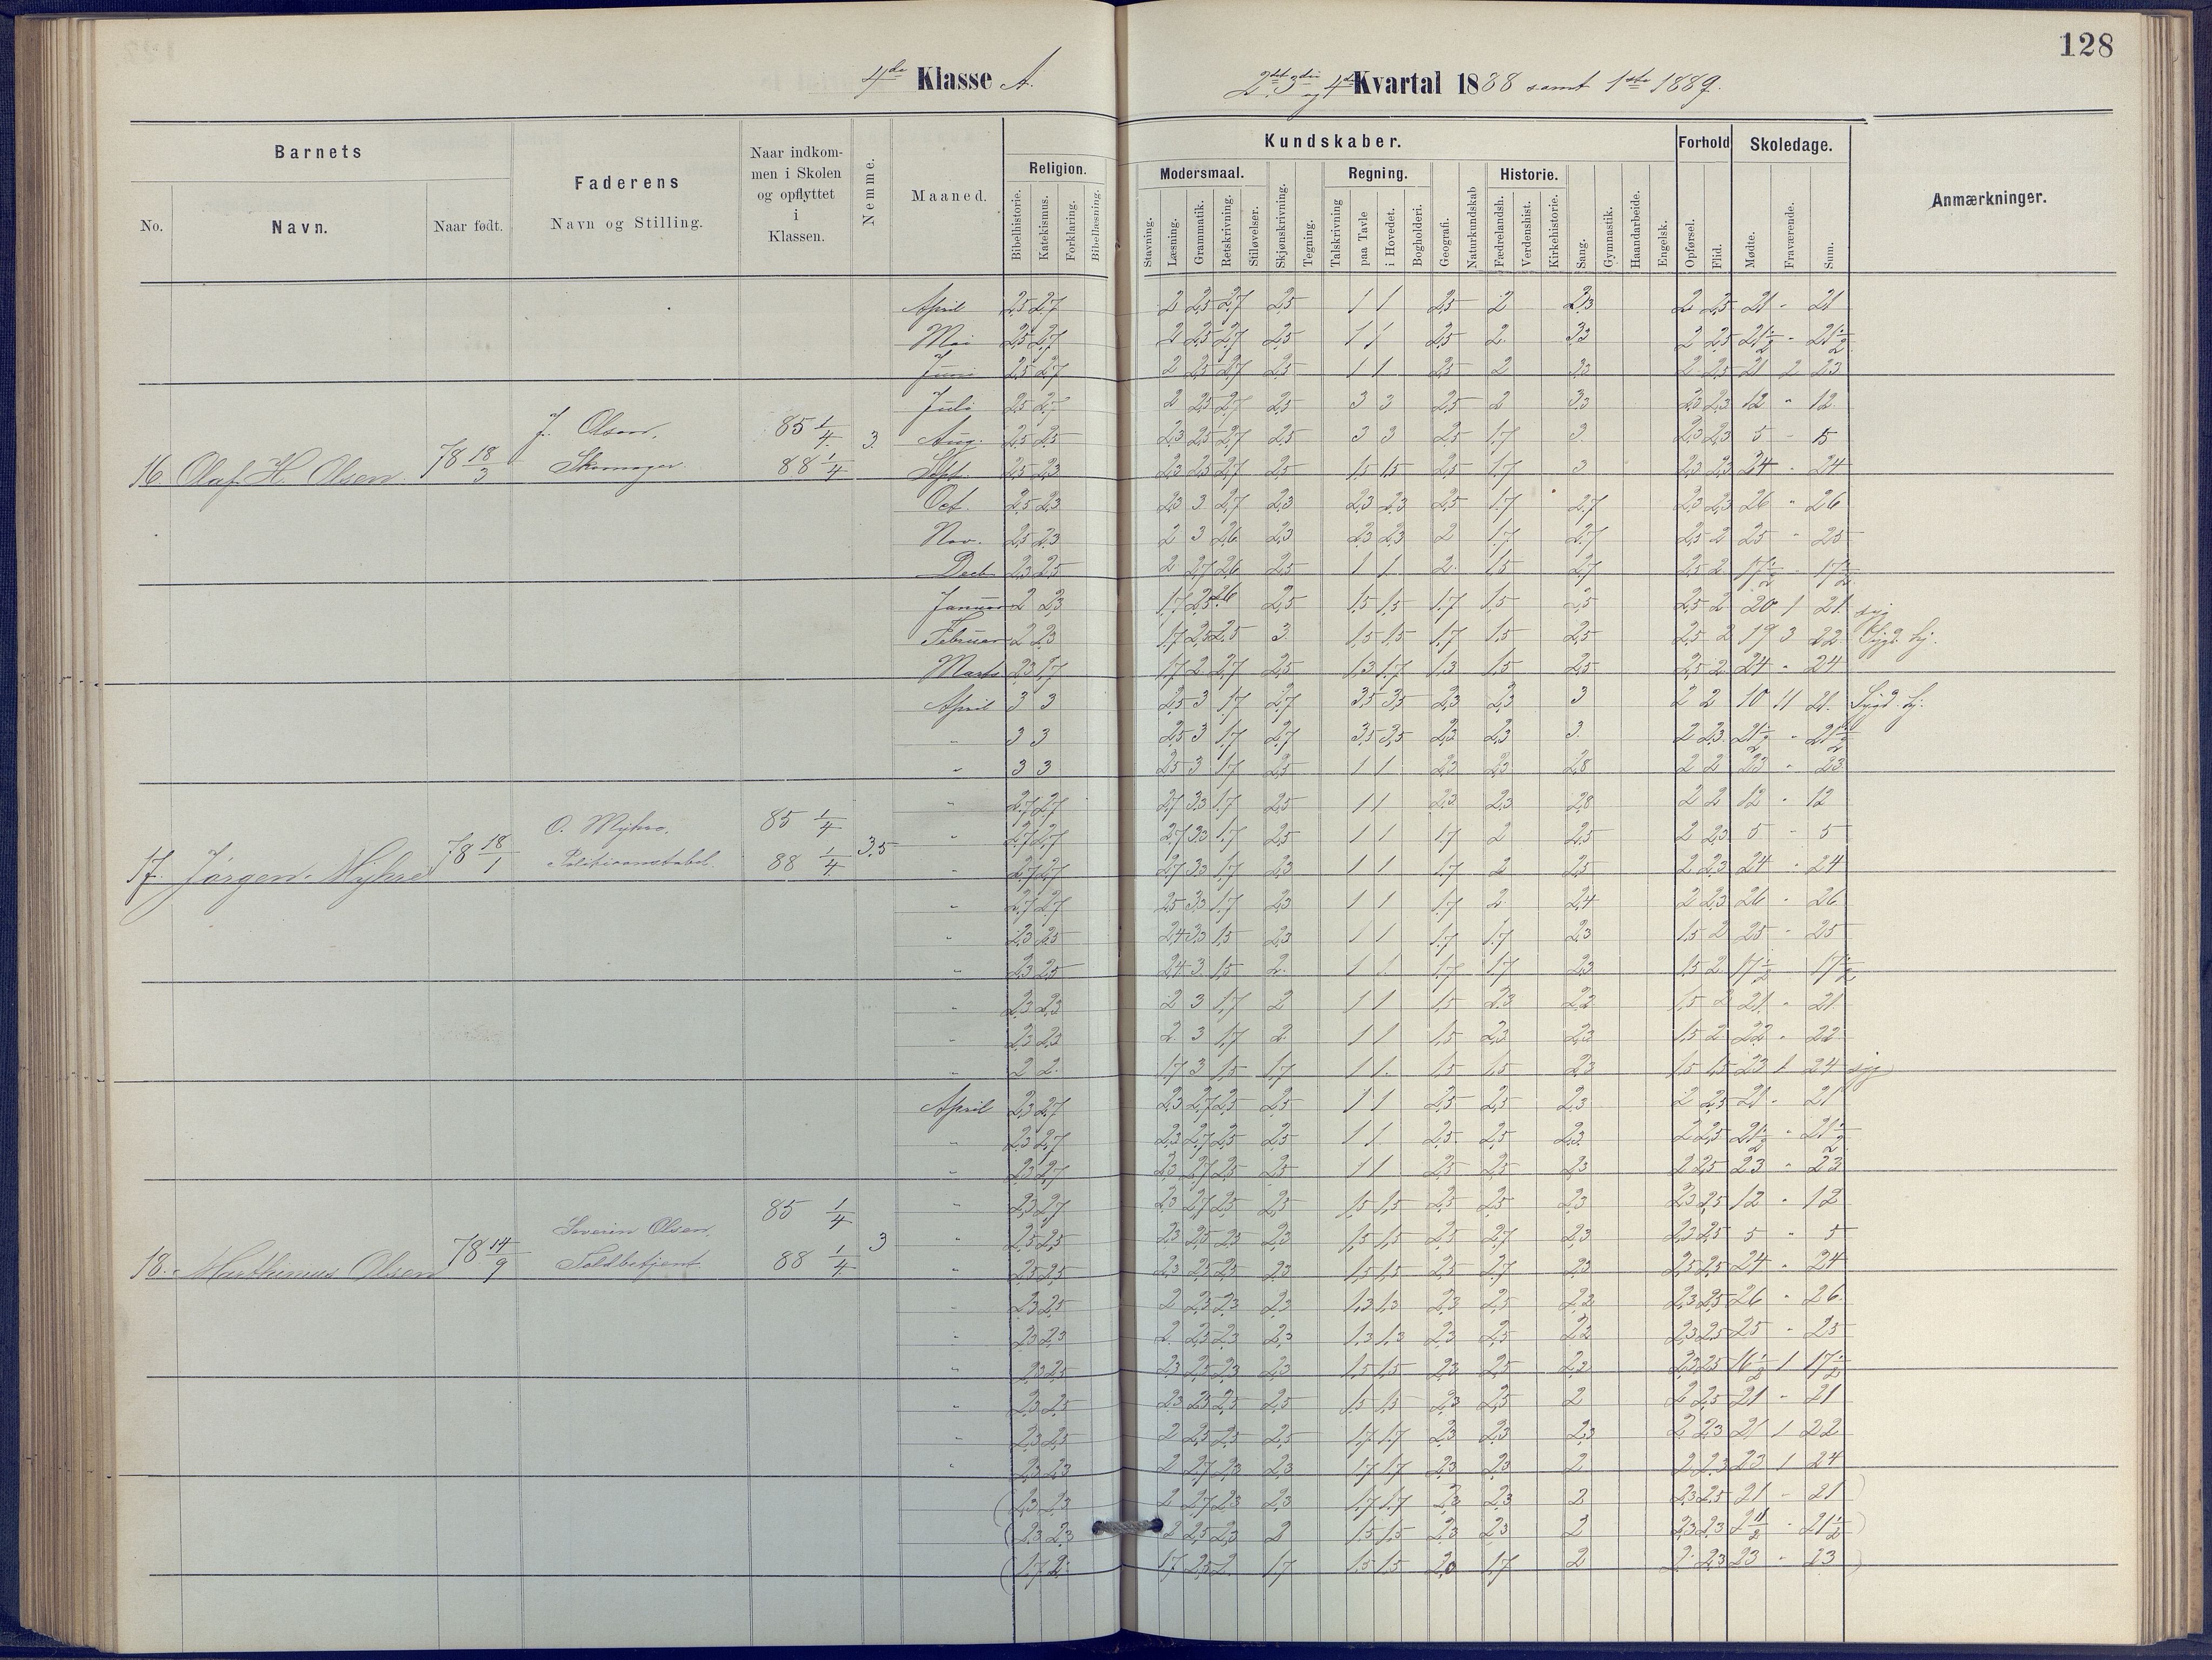 128
4de Klasse A.
2det 3die og 4de Kvartal 1888 samt 1ste 1889.
Barnets
No.
Navn.
Naar født.
Faderens
Navn og Stilling.
Naar indkom-
men i Skolen
og opflyttet
i
Klassen.
Nemme.
Maaned.
Kundskaber.
Religion.
Bibelhistorie.
Katekismus.
Forklaring.
Bibellæsning.
Modersmaal.
Stavning.
Læsning.
Grammatik.
Retskrivning.
Stiløvelser.
Skjønskrivning.
Tegning.
Regning.
Talskrivning
paa Tavle
i Hovedet.
Bogholderi.
Geografi.
Naturkundskab
Historie.
Fædrelandsh.
Verdenshist.
Kirkehistorie.
Sang.
Gymnastik.
Haandarbeide.
Engelsk.
Forhold
Opførsel.
Flid.
Skoledage.
Mødte.
Fraværende.
Sum.
Anmærkninger.
April 2,5 2,7 2 2,5 2,7 2,5 1 1 2,5 2 3,3 2 2,5 21 - 21
Mai 2,5 2,7 2 2,5 2,7 2,5 1 1 2,5 2 3,3 2 2,5 21 1/2 - 21 1/2
Juni 2,5 2,7 2 2,5 2,7 2,5 1 1 2,5 2 3,3 2 2,5 21 2 23
Juli 2,5 2,7 2 2,5 2,7 2,5 3 3 2,5 2 3,3 2,3 2,3 12 " 12
16. Olaf H. Olsen. 78 18/3 J. Olsen, Skomager. 85 1/4 88 1/4 3.
Aug. 2,5 2,5 2,3 2,5 2,7 2,5 3 3 2,5 1,7 3. 2,3 2,3 5 - 5
Sept. 2,5 2,3 2,3 2,5 2,7 2,5 1,5 1,5 2,5 1,7 3 2,3 2,3 24 - 24
Oct. 2,5 2,3 2,3 3 2,7 2,3 2,3 2,3 2,5 1,7 2,7 2,3 2,3 26 - 26
Nov. 2,5 2,3 2 3 2,6 2,3 2,3 2,3 2 1,7 2,7 2,5 2 25 " 25
Decb 2,3 2,5 2 2,7 2,6 2,5 1 1 2 1,5 2,7 2,5 2 17 1/2 - 17 1/2
Januar 2 2,3 1,7 2,5 2,6 2,5 1,5 1,5 1,7 1,5 2,5 2,5 2 20 1 21 syg
Februar 2 2,3 1,7 2,5 2,5 3. 1,5 1,5 1,7 1,5 2,5 2,5 2 19 3 22 Sygd. hj.
Marts 2,3 1,7 1,7 2 2,7 2,5 1,3 1,7 1,3 1,5 2,5 2,5 2 24 - 24
April 3 3 2,5 3 1,7 2,7 3,5 3,5 2,3 2,3 3 2 2 10 11 21. Sygd. hj.
" 3 3 2,5 3 1,7 2,7 3,5 3,5 2,3 2,3 3. 2 2,3 21 1/2 - 21 1/2
" 3 3 2,5 3 1,7 2,5 1 1 2,3 2,3 2,8 2 2 23 - 23
" 2,7 2,7 2,7 3,3 1,7 2,5 1 1 2,3 2,3 2,8 2 2 12 - 12
17. Jørgen Myhre 78 18/1 O. Myhre, Politikonstabel. 85 1/4 88 1/4 3,5
" 2,7 2,7 2,7 3,3 1,7 2,5 1 1 1,7 2 2,5 2 2,3 5 - 5
" 2,7 2,7 2,7 3,3 1,7 2,3 1 1 1,7 2 2,5 2 2,3 24 - 24
" 2,7 2,7 2,5 3,3 1,7 2,3 1 1 1,7 2 2,4 2 2,3 26 - 26
" 2,3 2,5 2,4 3,3 1,5 2,3 1 1 1,7 1,7 2,3 1,5 2 25 - 25
" 2,3 2,5 2,4 3. 1,5 2. 1 1 1,7 1,7 2,3 1,5 2 17 1/2 17 1/2
" 2,3 2,3 2 3 1,7 2 1 1 1,5 2,3 2,2 1,5 2 21 - 21
" 2,3 2,3 2 3 1,7 2 1 1 1,5 2,3 2,3 1,5 2 22 - 22
" 2 2. 1,7 3 1,5 1,7 1 1. 1,5 1,5 2,3 1,5 1,5 23 1 24 syg
April 2,3 2,7 2,3 2,7 2,5 2,5 1 1 2,5 2,5 2,3 2 2,5 21 - 21
" 2,3 2,7 2,3 2,7 2,5 2,5 1 1 2,5 2,5 2,3 2 2,5 21 1/2 " 21 1/2
" 2,3 2,7 2,3 2,7 2,5 2,5 1 1 2,5 2,5 2,3 2 2,5 23 " 23
" 2,3 2,7 2,3 2,7 2,5 2,5 1,5 1,5 2,5 2,5 2,3 2,3 2,5 12 " 12
18. Marthinius Olsen 78 14/9 Severin Olsen, Toldbetjent 85 1/4 88 1/4 3
" 2,5 2,5 2,3 2,5 2,5 2,3 1,5 1,5 2,5 2,7 2,3 2,3 2,5 5 " 5
" 2,5 2,5 2,3 2,5 2,5 2,3 1,5 1,5 2,5 2,7 2,3 2,5 2,5 24 - 24
" 2,3 2,5 2 2,5 2,3 2,3 1,3 1,3 2,3 2,5 2,2 2,3 2,5 26 " 26
" 2,3 2,3 2 2,5 2,3 2,3 1,3 1,3 2,3 2,5 2,2 2,3 2,5 25 - 25
" 2,3 2,5 2,3 2,5 2,3 2,3 1,5 1,5 2,3 2,5 2,2 2,3 2,5 16 1/2 1 17 1/2
" 2,3 2,5 2,3 2,5 2,5 2,5 1,5 1,5 2,3 2,5 2 2 2,5 21 - 21
" 2,3 2,5 2 2,5 2,5 2,5 1,7 1,7 2,3 2,3 2,3 2 2,3 21 1 22
" 2,3 2,3 2 2,7 2,3 2,3 1,7 1,7 2,3 2,3 2 2 2,3 23 1 24
(2,3 2,3 2 2,7 2,3 2,3 1,7 1,7 2,3 2,3 2 2,3 2,5 21 - 21)
(2,3 2,3 2 2,5 2,3 2 1,5 1,5 2,3 2,3 2 2,3 2,3 21 1/2 - 21 1/2)
(1,7 2. 1,7 2,5 2. 1,7 1,5 1,5 2,0 1,7 2 2 2,3 23 - 23)